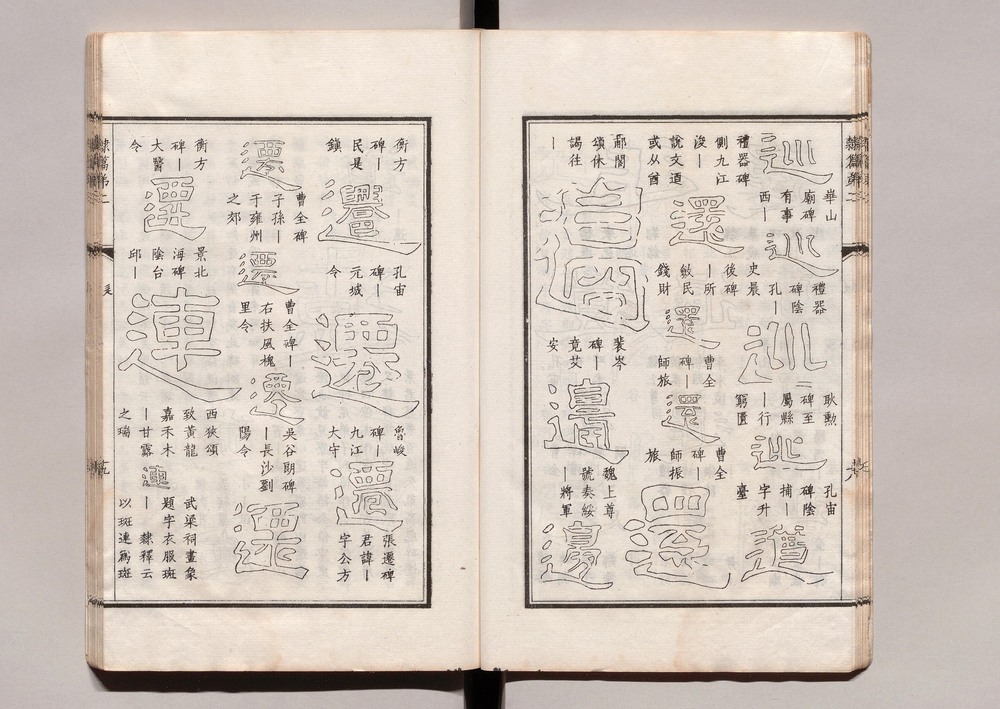 巡
華山
廟碑
有事
西｜
巡
禮器
碑陰
孔｜
巡
耿勳
碑至
屬縣
｜行
窮匱
巡
孔宙
碑陰
捕｜
字升
臺
禮器碑
側九江
浚｜
說文遒
或从酋
還
史晨
後碑
｜所
斂民
錢財
還
曹全
碑｜
師旅
還
曹全
碑｜
師振
旅
還
郙閣
頌休
謁往
｜
裴岑
碑｜
竟艾
安
邊
魏上尊
號奏綏
｜將軍
邊
衡方
碑｜
民是
鎮
遷
孔宙
碑｜
元城
令
遷
魯峻
碑｜
九江
大守
遷
張遷碑
君諱｜
字公方
遷
曹全碑
子孫｜
于雍州
之郊
遷
曹全碑｜
右扶風槐
里令
遷
吳谷朗碑
｜長沙劉
陽令
遷
衡方
碑｜
大醫
令
遷
景北
海碑
陰台
邱｜
連
西狹頌
致黃龍
嘉禾木
｜甘露
之瑞
連
武梁祠畫象
題字衣服斑
｜隸釋云
以斑連爲斑
隸篇弟二